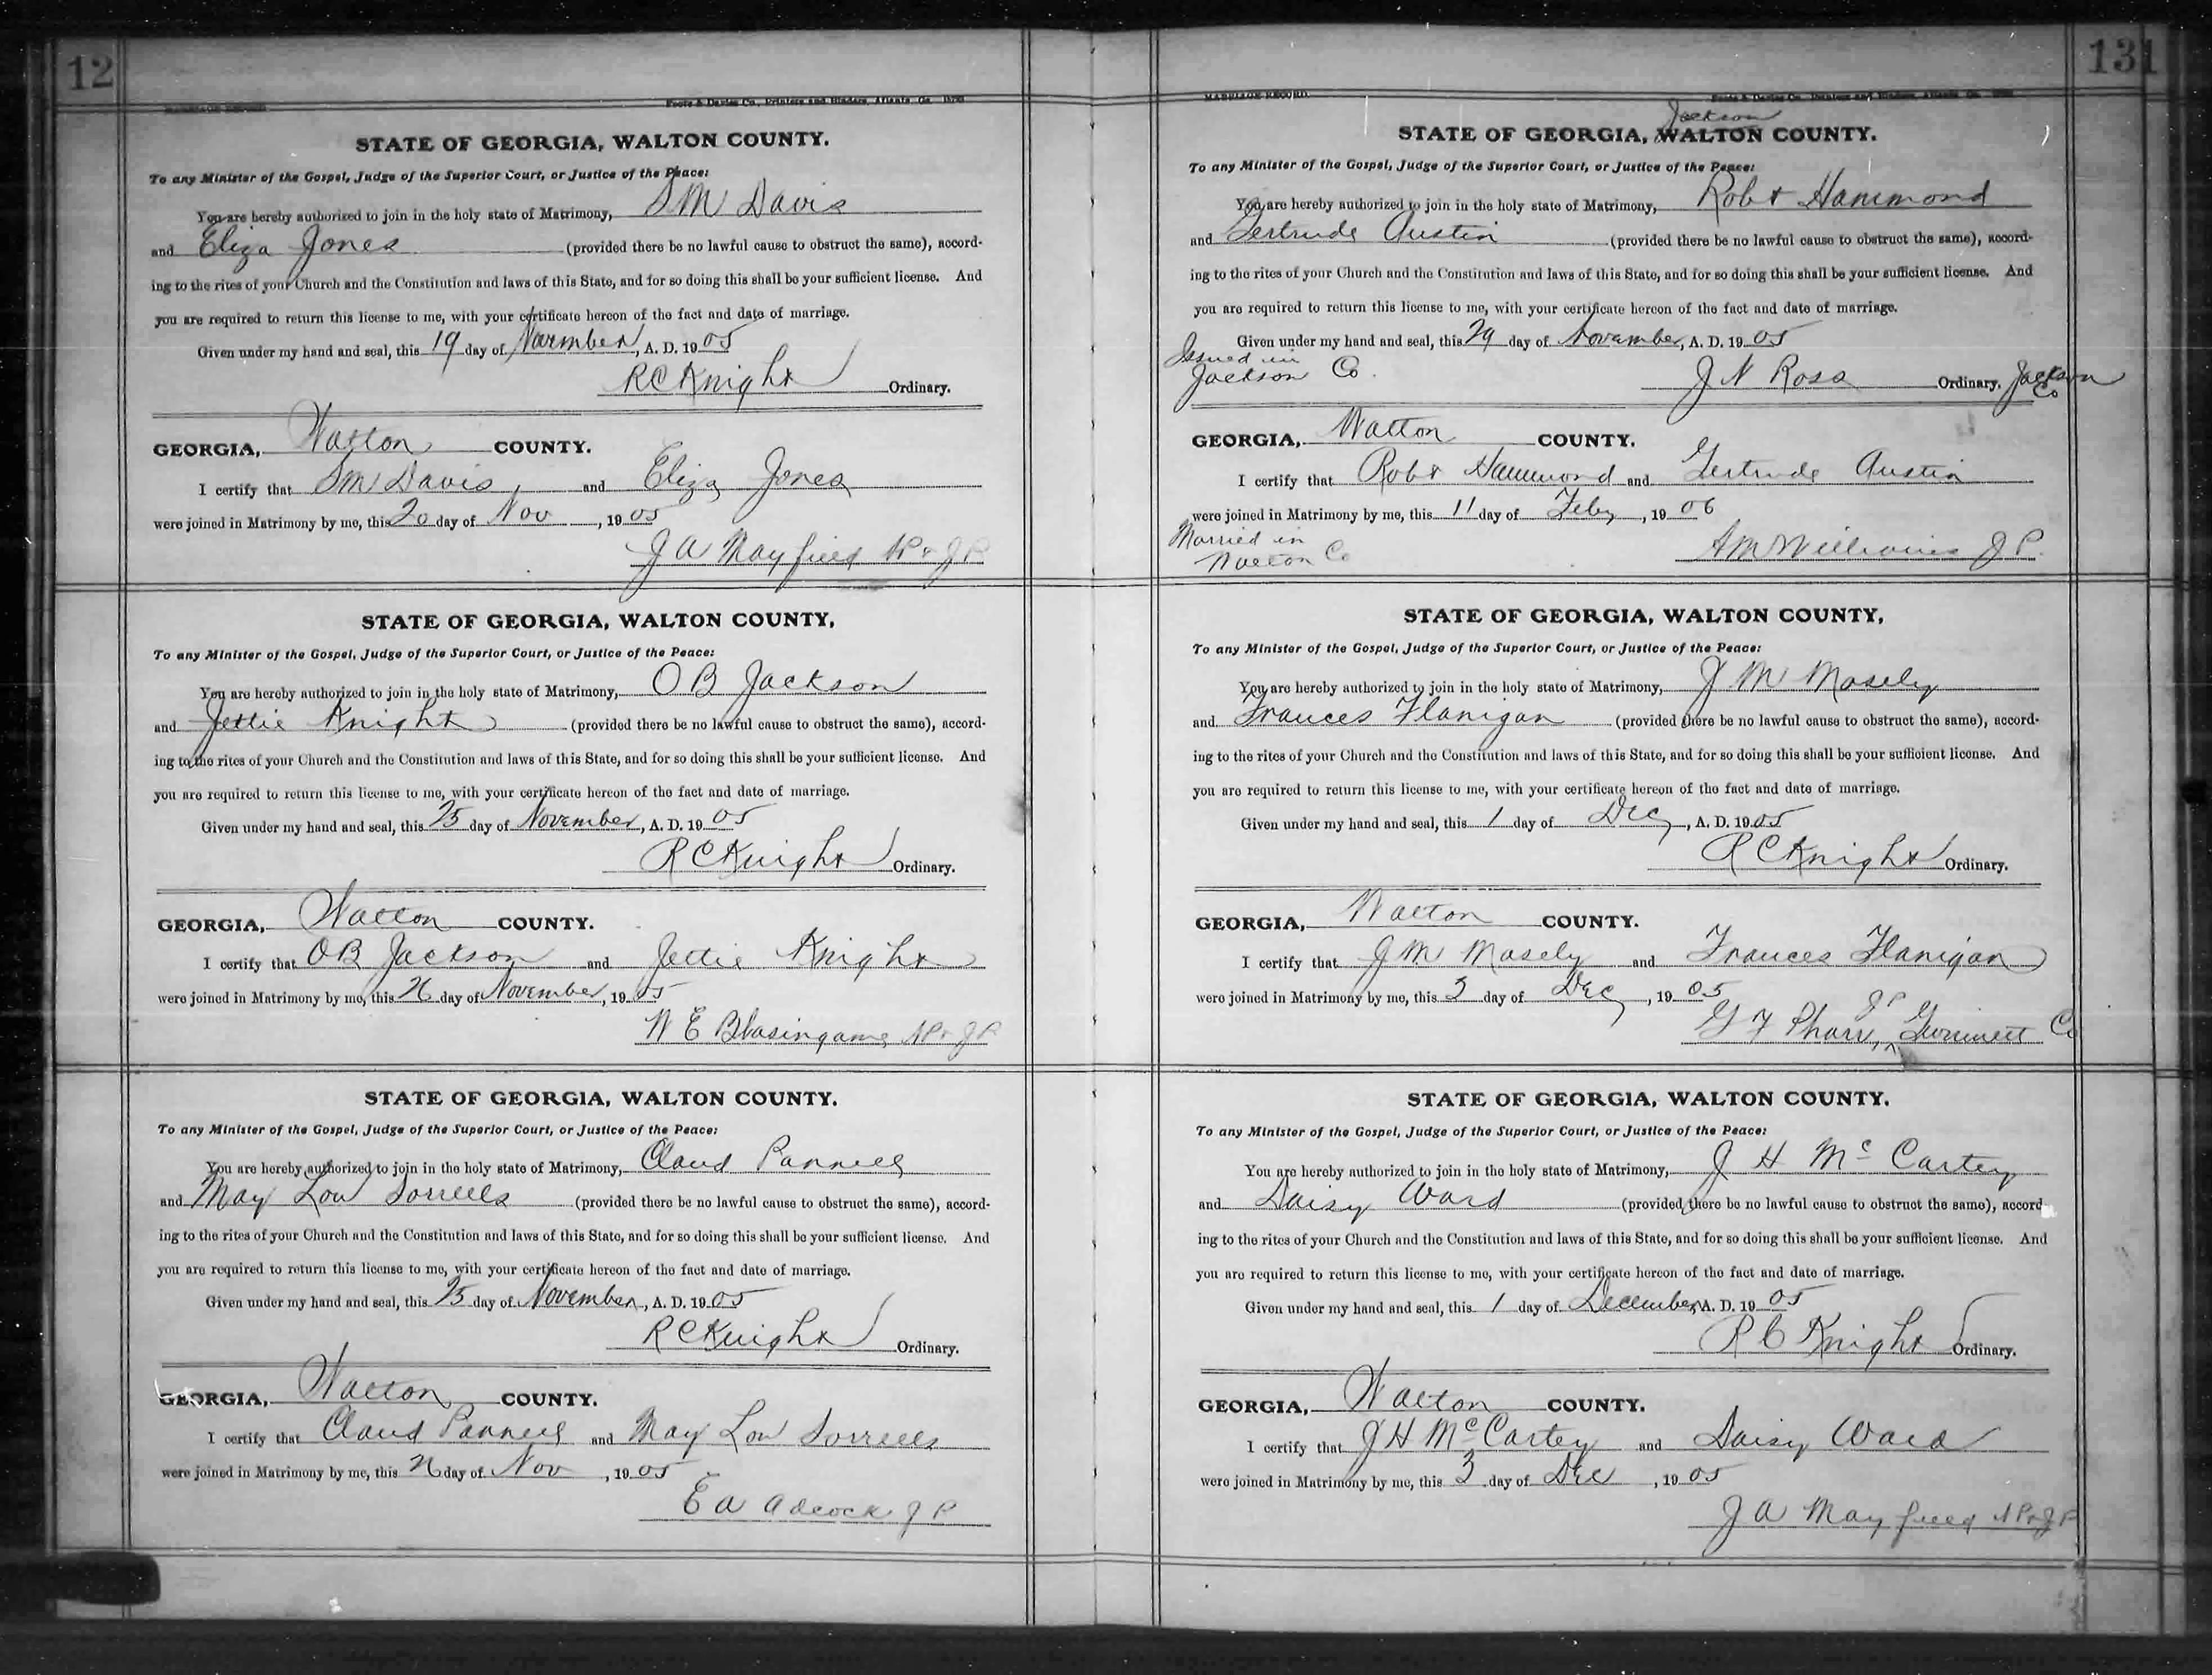 12
MARRIAGE RECORD.
Foote & Davies Co., Printers and Binders, Atlanta, Ga.
STATE OF GEORGIA, WALTON COUNTY.
To any Minister of the Gospel, Judge of the Superior Court, or Justice of the Peace:
You are hereby authorized to join in the holy state of Matrimony, S M Davis
and Eliza Jones (provided there be no lawful cause to obstruct the same), accord-
ing to the rites of your Church and the Constitution and laws of this State, and for so doing this shall be your sufficient license. And
you are required to return this license to me, with your certificate hereon of the fact and date of marriage.
Given under my hand and seal, this 19 day of November, A. D. 1905
R C Knight Ordinary.
GEORGIA, Walton COUNTY.
I certify that S M Davis, and Eliza Jones
were joined in Matrimony by me, this 20 day of Nov, 1905
J A Mayfield N P & J P
STATE OF GEORGIA, WALTON COUNTY,
To any Minister of the Gospel, Judge of the Superior Court, or Justice of the Peace:
You are hereby authorized to join in the holy state of Matrimony, O B Jackson
and Jettie Knight (provided there be no lawful cause to obstruct the same), accord-
ing to the rites of your Church and the Constitution and laws of this State, and for so doing this shall be your sufficient license. And
you are required to return this license to me, with your certificate hereon of the fact and date of marriage.
Given under my hand and seal, this 25 day of November, A. D. 1905
R C Knight Ordinary.
GEORGIA, Walton COUNTY.
I certify that O B Jackson and Jettie Knight
were joined in Matrimony by me, this 26 day of November, 1905
W E Blasingame N P & J P
STATE OF GEORGIA, WALTON COUNTY.
To any Minister of the Gospel, Judge of the Superior Court, or Justice of the Peace:
You are hereby authorized to join in the holy state of Matrimony, Claud Pannell
and May Lou Sorrells (provided there be no lawful cause to obstruct the same), accord-
ing to the rites of your Church and the Constitution and laws of this State, and for so doing this shall be your sufficient license. And
you are required to return this license to me, with your certificate hereon of the fact and date of marriage.
Given under my hand and seal, this 25 day of November, A. D. 1905
R C Knight Ordinary.
GEORGIA, Walton COUNTY.
I certify that Claud Pannell and May Lou Sorrells
were joined in Matrimony by me, this 26 day of Nov, 1905
E A Adcock J P
131
MARRIAGE RECORD.
Foote & Davies Co., Printers and Binders, Atlanta, Ga.
Jackson
STATE OF GEORGIA, WALTON COUNTY.
To any Minister of the Gospel, Judge of the Superior Court, or Justice of the Peace:
You are hereby authorized to join in the holy state of Matrimony, Robt Hammond
and Gertrude Austin (provided there be no lawful cause to obstruct the same), accord-
ing to the rites of your Church and the Constitution and laws of this State, and for so doing this shall be your sufficient license. And
you are required to return this license to me, with your certificate hereon of the fact and date of marriage.
Given under my hand and seal, this 29 day of November, A. D. 1905
Issued in
Jackson Co. J N Ross Ordinary. Jackson Co
GEORGIA, Walton COUNTY.
I certify that Robt Hammond and Gertrude Austin
were joined in Matrimony by me, this 11 day of Feby, 1906
Married in
Walton Co A M Williams J P.
STATE OF GEORGIA, WALTON COUNTY,
To any Minister of the Gospel, Judge of the Superior Court, or Justice of the Peace:
You are hereby authorized to join in the holy state of Matrimony, J M Mosely
and Frances Flanigan (provided there be no lawful cause to obstruct the same), accord-
ing to the rites of your Church and the Constitution and laws of this State, and for so doing this shall be your sufficient license. And
you are required to return this license to me, with your certificate hereon of the fact and date of marriage.
Given under my hand and seal, this 1 day of Dec, A. D. 1905
R C Knight Ordinary.
GEORGIA, Walton COUNTY.
I certify that J M Mosely and Frances Flanigan
were joined in Matrimony by me, this 3 day of Dec, 1905
G F Pharr, J P Gwinnett Co
STATE OF GEORGIA, WALTON COUNTY.
To any Minister of the Gospel, Judge of the Superior Court, or Justice of the Peace:
You are hereby authorized to join in the holy state of Matrimony, J H McCartey
and Daisy Ward (provided there be no lawful cause to obstruct the same), accord-
ing to the rites of your Church and the Constitution and laws of this State, and for so doing this shall be your sufficient license. And
you are required to return this license to me, with your certificate hereon of the fact and date of marriage.
Given under my hand and seal, this 1 day of December, A. D. 1905
R C Knight Ordinary.
GEORGIA, Walton COUNTY.
I certify that J H McCartey and Daisy Ward
were joined in Matrimony by me, this 3 day of Dec, 1905
J A Mayfield N P & J P